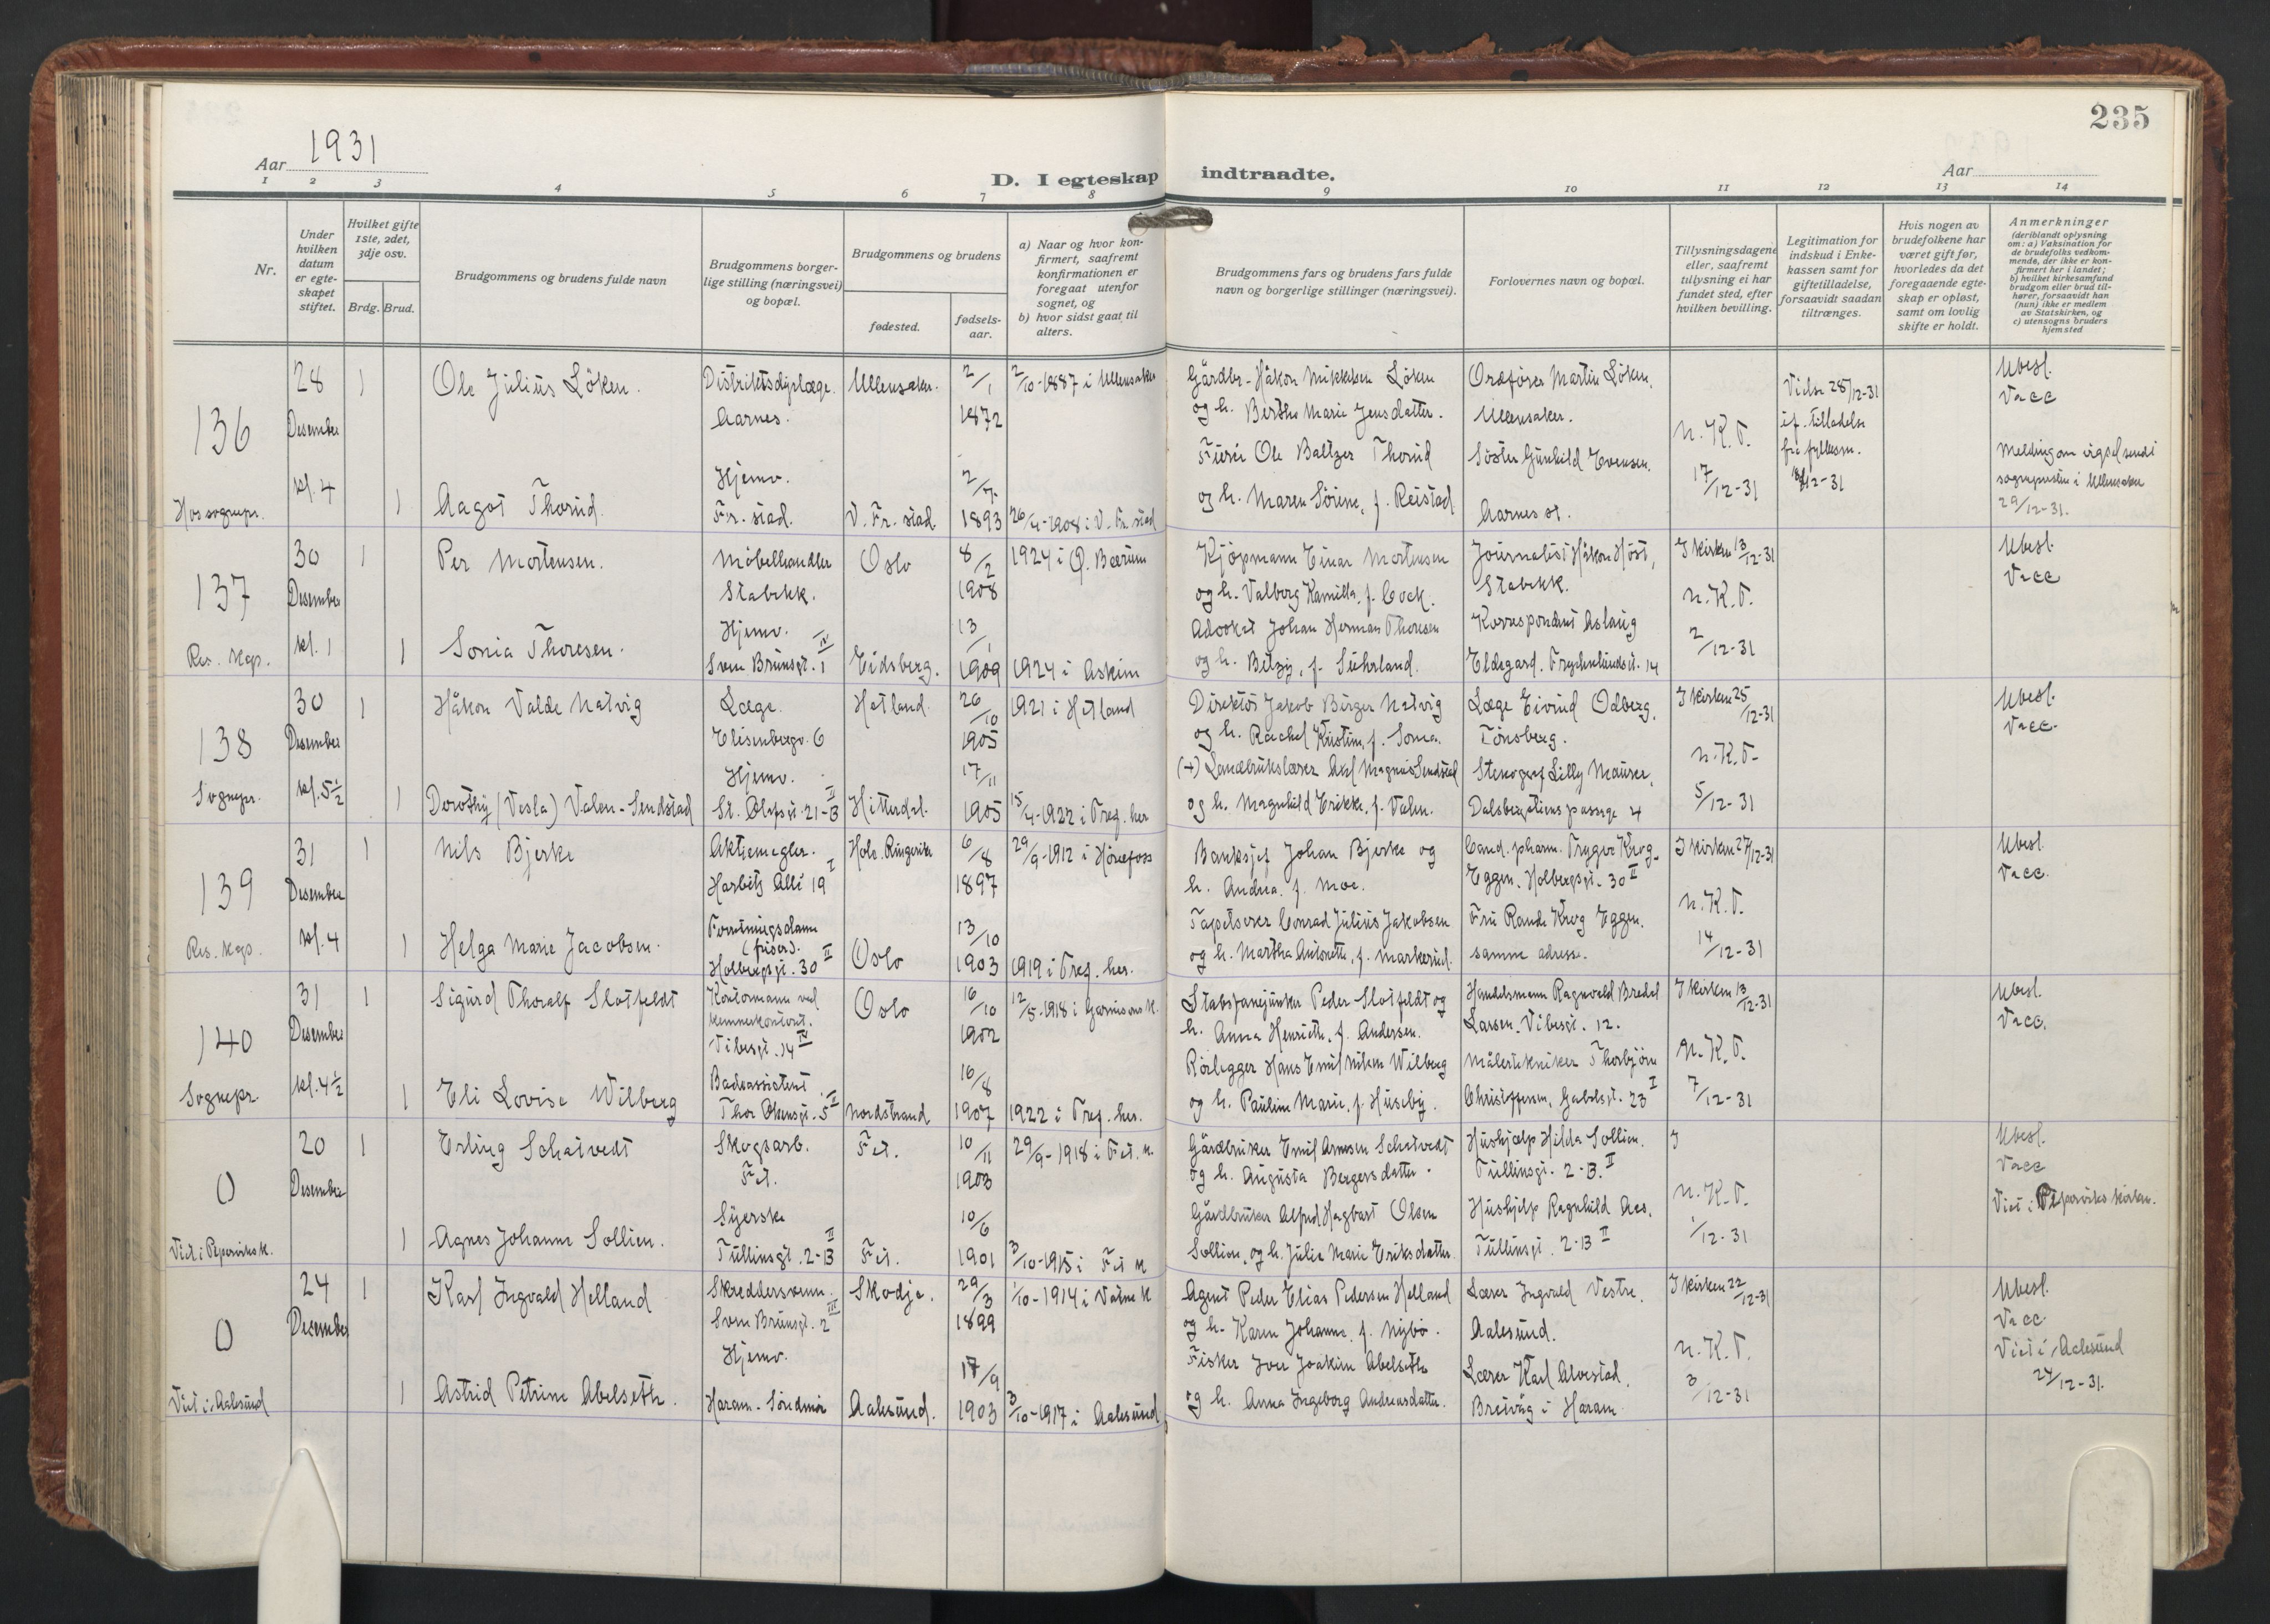 235
Aar 1931
D. I egteskap indtraadte.
Aar
1 2 3 4 5 6 7 8 9 10 11 12 13 14
Nr.
Under hvilken datum er egte-skapet stiftet.
Hvilket gifte 1ste, 2det, 3dje osv.
Brdg. Brud.
Brudgommens og brudens fulde navn
Brudgommens borger-lige stilling (næringsvei) og bopæl.
Brudgommens og brudens
fødested.
fødsels-aar.
a) Naar og hvor kon-firmert, saafremt konfirmationen er foregaat utenfor sognet, og
b) hvor sidst gaat til alters.
Brudgommens fars og brudens fars fulde navn og borgerlige stillinger (næringsvei).
Forlovernes navn og bopæl.
Tillysningsdagene eller, saafremt tillysning ei har fundet sted, efter hvilken bevilling.
Legitimation for indskud i Enke-kassen samt for giftetilladelse, forsaavidt saadan tiltrænges.
Hvis nogen av brudefolkene har været gift før, hvorledes da det foregaaende egte-skap er opløst, samt om lovlig skifte er holdt.
Anmerkninger
(deriblandt oplysning om: a) Vaksination for de brudefolks vedkom-mende, der ikke er kon-firmert her i landet; b) hvilket kirkesamfund brudgom eller brud til-hører, forsaavidt han (hun) ikke er medlem av Statskirken, og c) utensogns bruders hjemsted
136
Hos sognepr.
28 Desember kl. 4
1
Ole Julius Löken.
Distriktsdyrlæge. Aarnes.
Ullensaker.
2/1 1872
2/10-1887 i Ullensaker
Gårdbr. Håkon Mikkelsen Löken
og h. Berthe Marie Jensdatter.
Ordförer Martin Löken, Ullensaker.
N.K.T.
17/12-31
Vielse 28/12-31
if. tilladelse
fra fylkesm.
Ubesl.
Vacc
1
Aagot Thorud.
Hjemv.
Fr.stad.
V. Fr.stad
1893
26/4-1908 i V. Fr.stad
Ole Baltzer Thorud
og h. Maren Sörine, f. Reistad
Söster Gunhild Evensen.
Aarnes st.
sognepresten i Ullensaker
29/12-31.
137
Res. kap.
30 Desember kl. 1
1
Per Mortensen.
Möbelhandler
Stabekk.
Oslo
8/2 1908
1924 i Ø. Bærum
Kjöpmann Einar Mortensen
og h. Valborg Kamilla, f. Cock.
Journalist Håkon Höst,
Stabekk.
I kirken 13/12-31
N.K.T.
2/12-31
Ubesl.
Vacc
1
Sonia Thoresen.
Hjemv.
Sven Brunsgt. 1 IV
Eidsberg.
13/1 1909
1924 i Askim
Advokat Johan Herman Thoresen
og h. Betzy, f. Suhrland.
Korrespondent Aslaug
138
Sognepr.
30 Desember kl. 5½
1
Håkon Valde Natvig
Læge.
Elisenbergv. 6
Hetland.
26/10 1905
1921 i Hetland
Direktör Jakob Birger Natvig
og h. Rachel Kristine, f. Soma.
Læge Eivind Odberg,
Tönsberg.
I kirken 25/12-31
N.K.T.
5/12-31
Ubesl.
Vacc.
1
Dorothy (Vesla) Valen-Sendstad
Hjemv.
St. Olafsgt. 21-B II
Hitterdal.
17/11 1905
15/4-1922 i Tref. her
(+) Landbrukslærer Axel Magnus Sendstad
og h. Magnhild Erikke, f. Valen.
Stenograf Lilly Maurer,
Dalsbergstiens passage 4
139
Res. kap.
31 Desember kl. 4
1
Nils Bjerke
Aktiemegler.
Harbitz Allé 19 I
Hole. Ringerike
6/8 1897
29/9-1912 i Hönefoss
Banksjef Johan Bjerke og
h. Andrea. f. Moe.
Cand. pharm. Trygve Krog-
Eggen. Holbergsgt. 30 II
I kirken 27/12-31
N.K.T.
14/12-31
Ubesl.
Vacc.
1
Helga Marie Jacobsen.
Forretningsdame
(frisör).
Holbergsgt. 30 II
Oslo
13/10 1903
1919 i Tref. her.
Tapetserer Conrad Julius Jakobsen
og h. Martha Antonette, f. Markerud.
Fru Randi Krog Eggen.
samme adresse.
140
Sognepr.
31 Desember kl. 4½
1
Sigurd Thoralf Slotfeldt
Kontormann ved
kemnerkontoret.
Vibesgt. 14 IV
Oslo
16/10 1902
12/5-1918 i Garnisons K.
Stabsfanejunker Peder Slotfeldt og
h. Anna Henriette, f. Andersen.
Handelsmann Ragnvald Bredel
Larsen. Vibesgt. 12.
I kirken 13/12-31
N.K.T.
7/12-31
Ubesl.
Vacc.
1
Eli Lovise Wilberg
Badeassistent
Thor Olsensgt. 5 II
Nordstrand
16/8 1907
1922 i Tref. her.
Rörlegger Hans Emil Nilsen Wilberg
og h. Pauline Marie, f. Huseby.
Målertekniker Thorbjörn
Christoffersen, Gabelsgt. 23 I
0
Viet i Pipervikens k.
20 Desember
1
Erling Schatvedt
Skogsarb.
Fet.
Fet.
10/11 1903
29/9-1918 i Fet. K.
Gårdbruker Emil Arnesen Schatvedt
og h. Augusta Bergersdatter.
Hushjelp Hilda Sollien.
Tullinsgt. 2-B. II
I
N.K.T.
1/12-31
Ubesl.
Vacc
Viet i Pipervikens kirke.
1
Agnes Johanne Sollien.
Syerske
Tullinsgt. 2-B II
Fet.
10/6 1901
3/10-1915 i Fet K
Gårdbruker Alfred Hagbart Olsen
Sollien, og h. Julie Marie Eriksdatter.
Hushjelp Ragnhild Aas,
Tullinsgt. 2-B II
0
Viet i Aalesund
24 Desember
1
Karl Ingvald Helland
Skreddersvenn.
Sven Brunsgt. 2 III
Skodje.
29/3 1899
1/10-1914 i Vatne K
Agent Peder Elias Pedersen Helland
og h. Karen Johanne, f. Nybö.
Lærer Ingvald Vestre,
Aalesund.
I kirken 22/12-31
N.K.T.
3/12-31
Ubesl.
Vacc.
Viet i Aalesund
24/12-31.
1
Astrid Petrine Abelseth.
Hjemv.
Haram. Söndmör
Aalesund.
17/9 1903
3/10-1917 i Aalesund
Fisker Iver Joakim Abelseth
og h. Anna Ingeborg Andreasdatter.
Lærer Karl Alvestad,
Breivåg i Haram